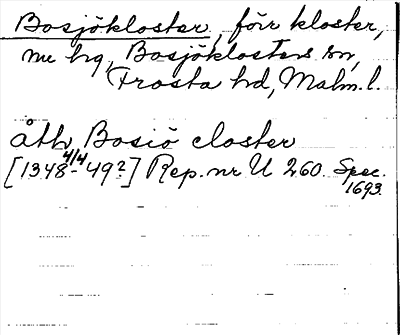 Bosjökloster, förr kloster,
nu hg, Bosjöklosters sn,
Frosta hd, Malm. l.
åth Bosiö closter
[1348 4/4 - 49?] Rep. nr U 260. Spec.
1693.